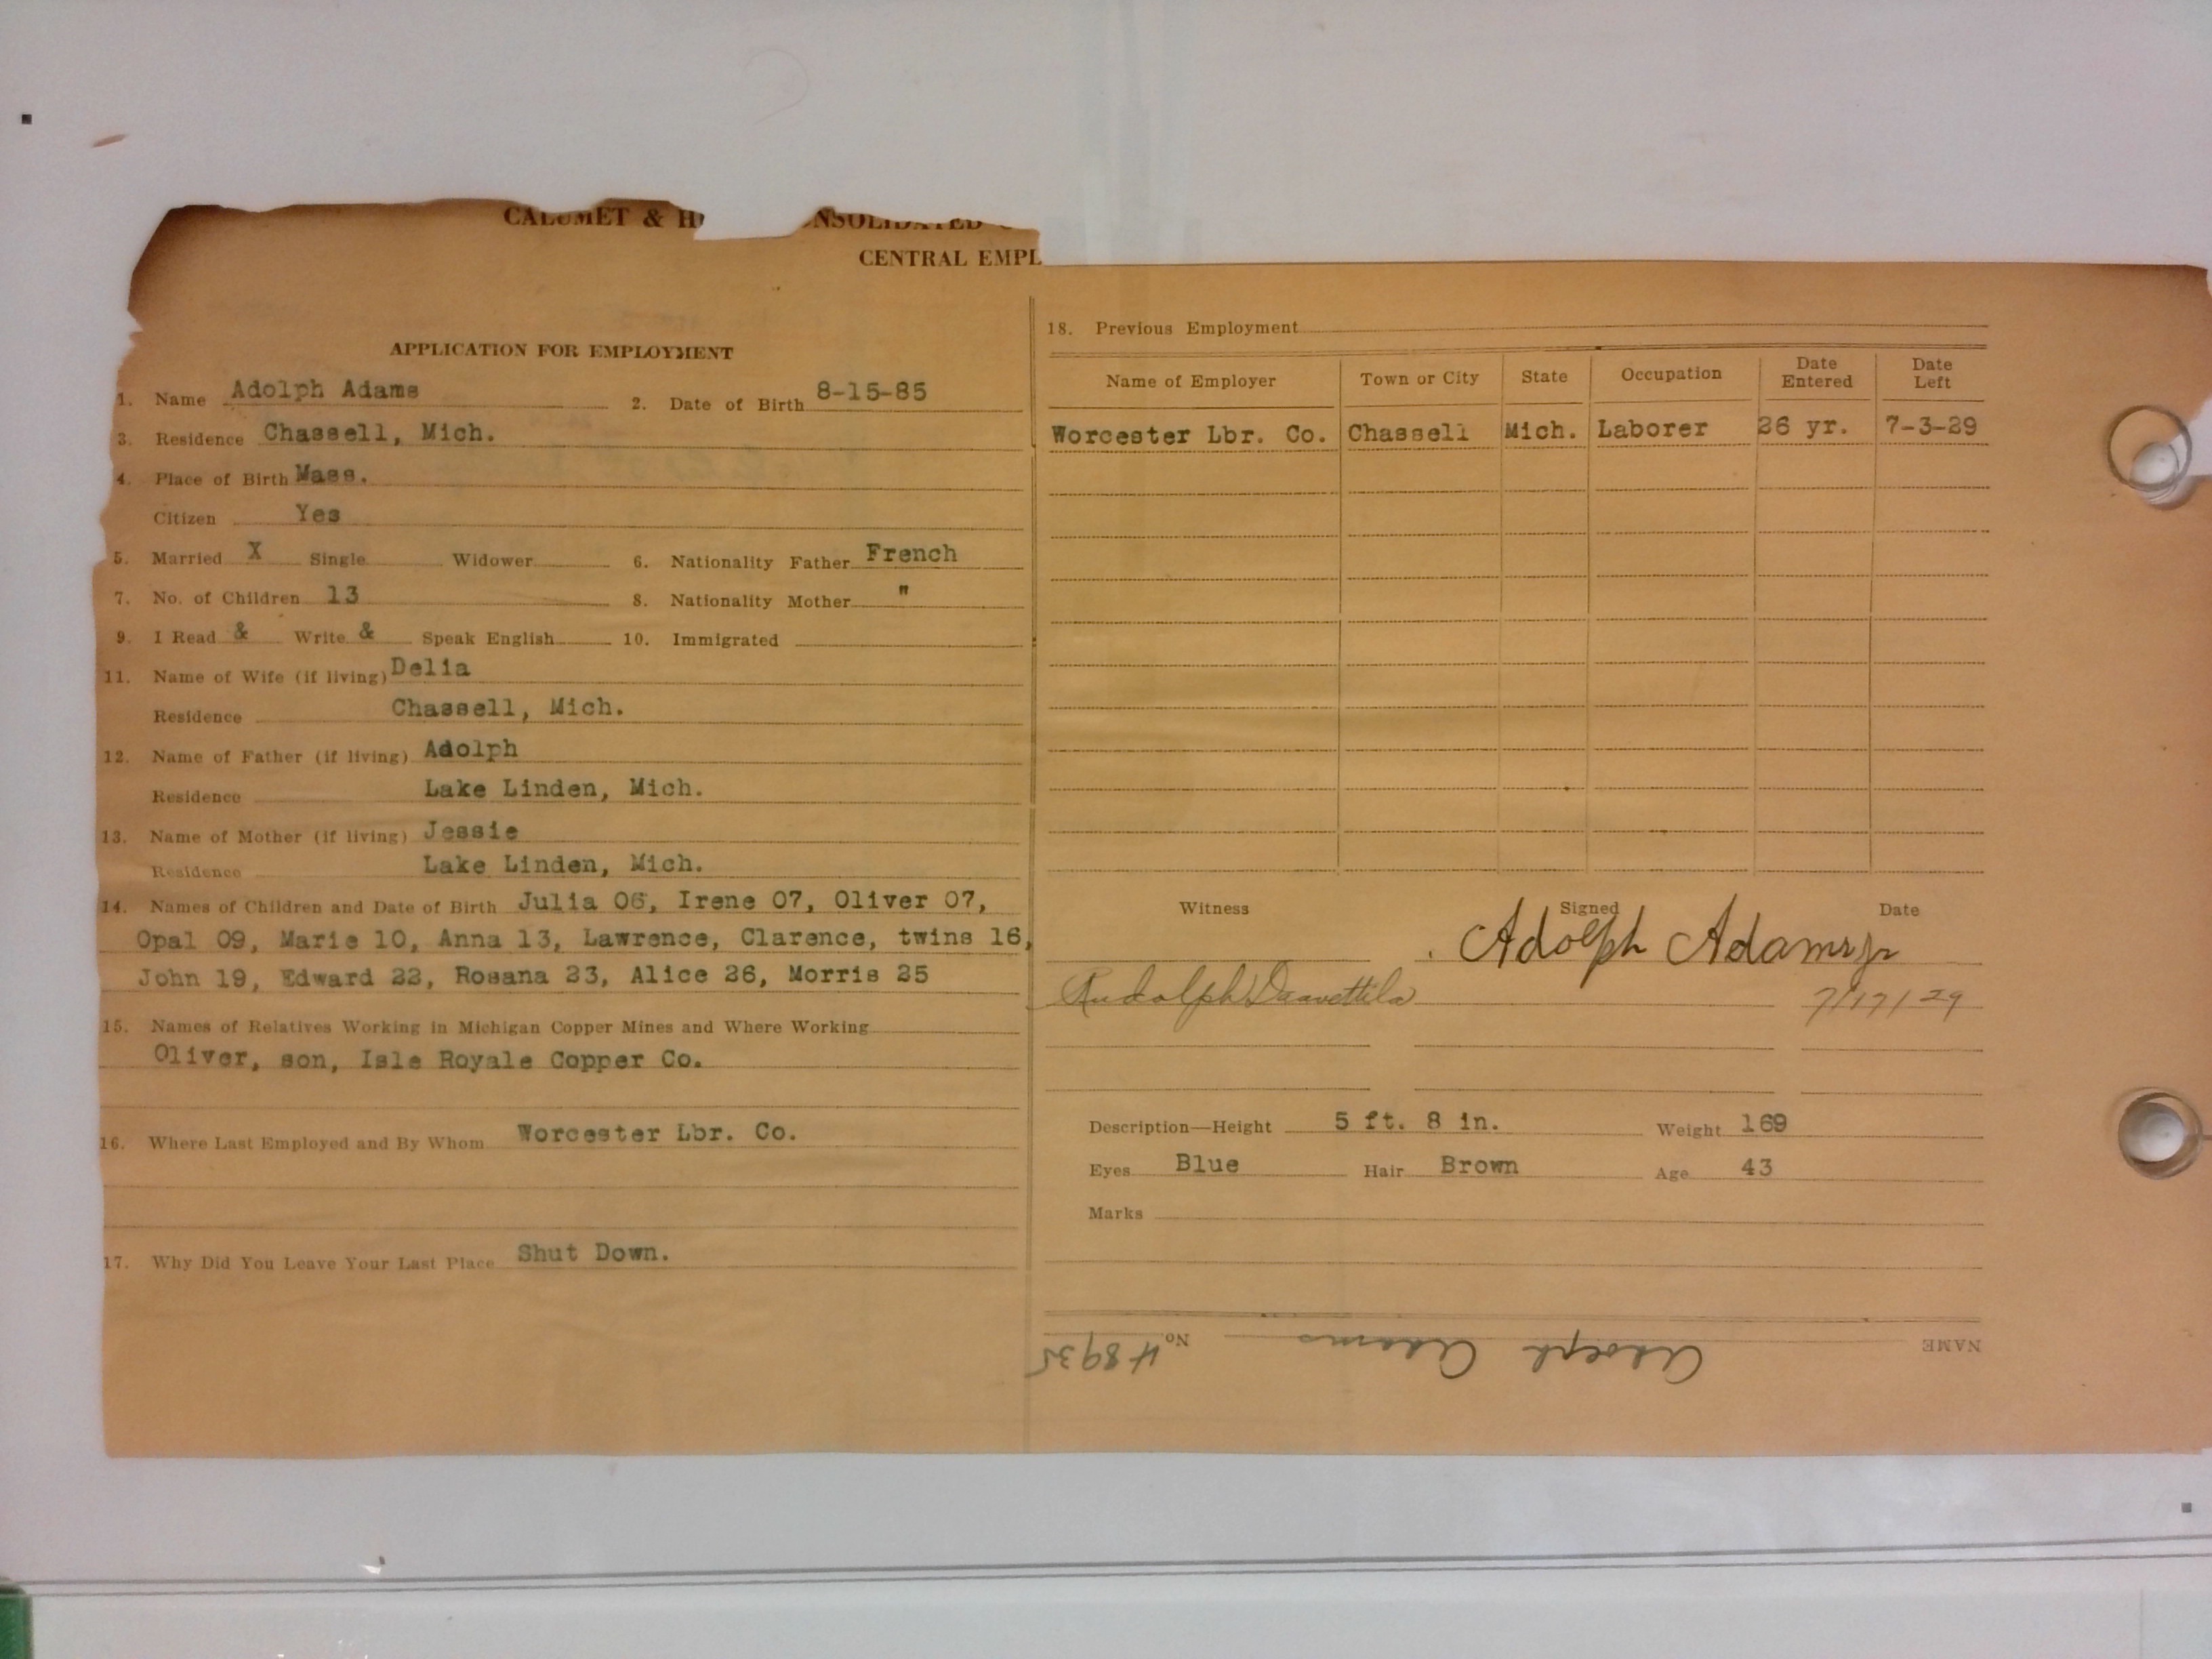 CALUMET & H NSOLIDATED
CENTRAL EMPL
APPLICATION FOR EMPLOYMENT
1. Name Adolph Adams 2. Date of Birth 8-15-85
3. Residence Chassell, Mich.
4. Place of Birth Mass.
Citizen Yes
5. Married X Single Widower 6. Nationality Father French
7. No. of Children 13 8. Nationality Mother "
9. I Read & Write & Speak English 10. Immigrated
11. Name of Wife (if living) Delia
Residence Chassell, Mich.
12. Name of Father (if living) Adolph
Residence Lake Linden, Mich.
13. Name of Mother (if living) Jessie
Residence Lake Linden, Mich.
14. Names of Children and Date of Birth Julia 06, Irene 07, Oliver 07,
Opal 09, Marie 10, Anna 13, Lawrence, Clarence, twins 16,
John 19, Edward 22, Rosana 23, Alice 26, Morris 25
15. Names of Relatives Working in Michigan Copper Mines and Where Working
Oliver, son, Isle Royale Copper Co.
16. Where Last Employed and By Whom Worcester Lbr. Co.
17. Why Did You Leave Your Last Place Shut Down.
18. Previous Employment
Name of Employer Town or City State Occupation Date Entered Date Left
Worcester Lbr. Co. Chassell Mich. Laborer 26 yr. 7-3-29
Witness Signed Date
Adolph Adams jr
Rudolph 7/17/29
Description—Height 5 ft. 8 in. Weight 169
Eyes Blue Hair Brown Age 43
Marks
NAME Adolph Adams No. 48935